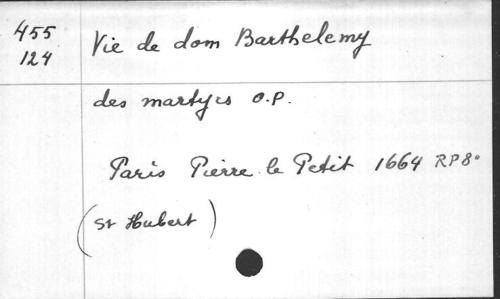 455
124
Vie de dom Barthelemy
des martyrs O.P.
Paris Pierre le Petit 1664 RP8°
(St Hubert)